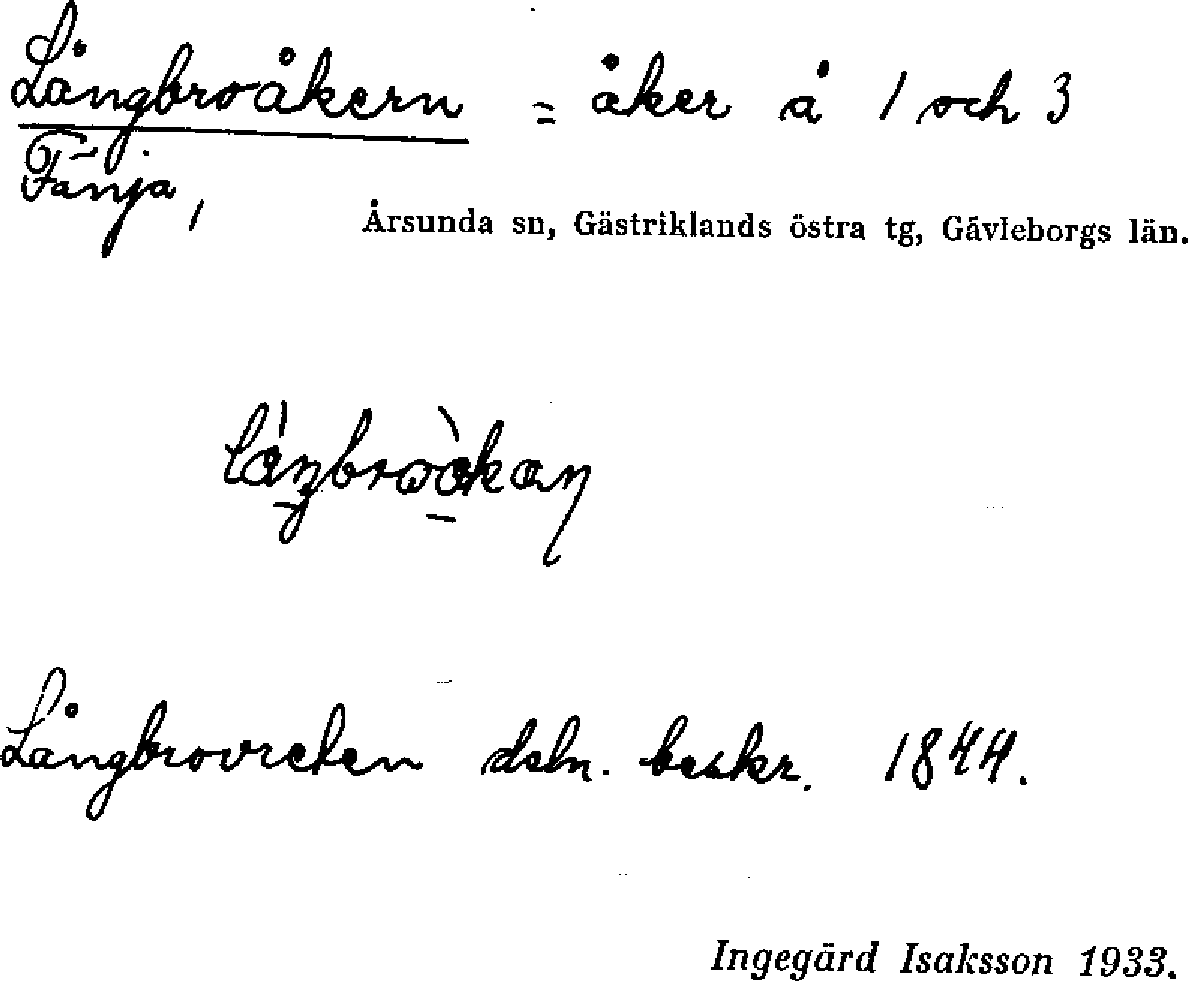 Långbroåkern = åker å 1 och 3
Fänja,
Årsunda sn, Gästriklands östra tg, Gävleborgs län.
Långbrovreten dsln. beskr. 1844.
Ingegärd Isaksson 1933.